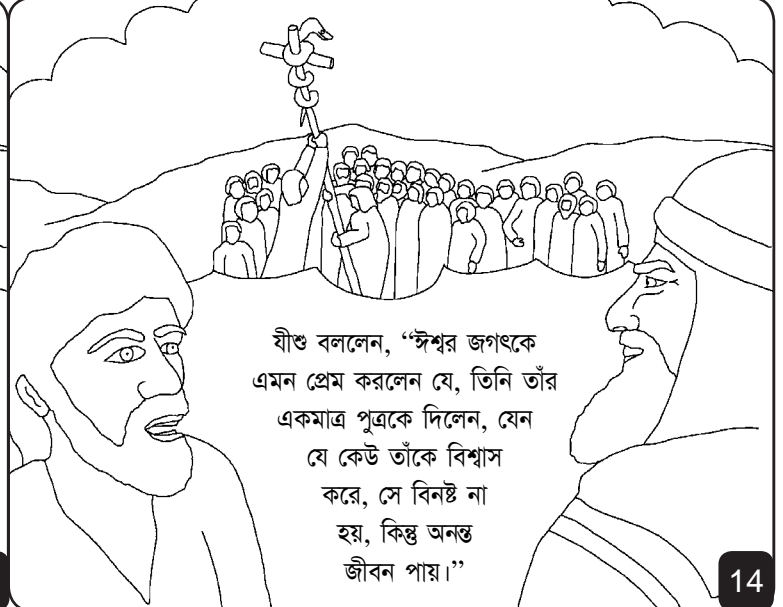 যীশু বললেন, “ঈশ্বর জগৎকে
এমন প্রেম করলেন যে, তিনি তাঁর
একমাত্র পুত্রকে দিলেন, যেন
যে কেউ তাঁকে বিশ্বাস
করে, সে বিনষ্ট না
হয়, কিন্তু অনন্ত
জীবন পায়।”
14